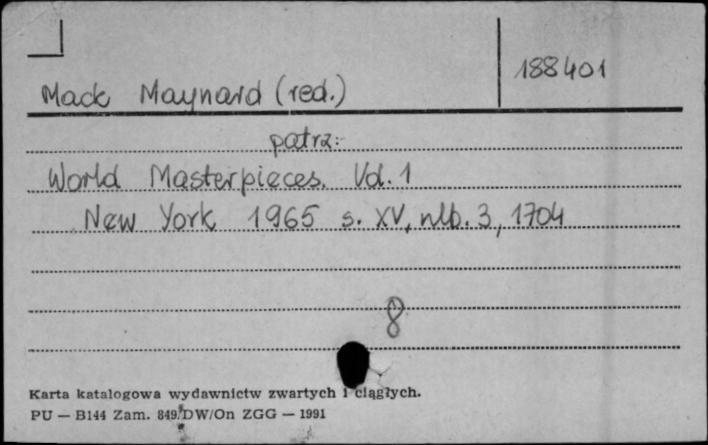 188401
Mack Maynard (red.)
patrz:
World Masterpieces. Vol. 1
New York 1965 s. XV, nlb. 3, 1704
8
Karta katalogowa wydawnictw zwartych i ciągłych.
PU — B144 Zam. 849/DW/On ZGG — 1991